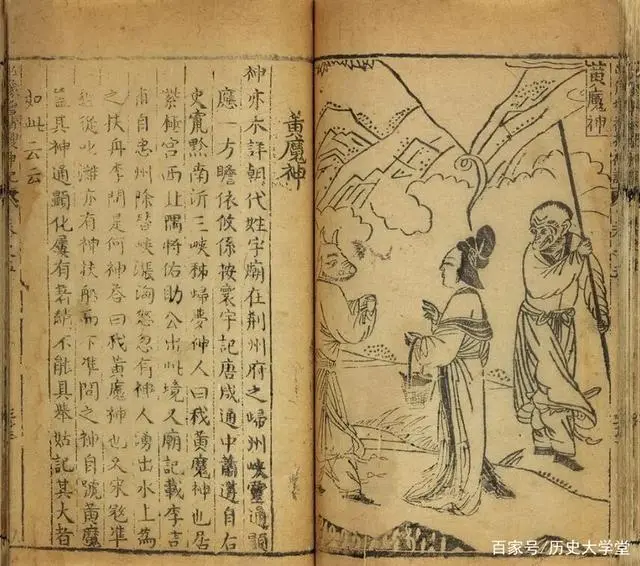 黃魔神
黃魔神
神亦不詳朝代姓字廟在荆州府之歸州峽靈通顯
應一方瞻依攸係按寰宇記唐咸通中蕭遘自右
史竄黔南泝三峽秭歸夢神人曰我黃魔神也居
紫極宮西北隅將佑助公出此境又廟記載李吉
甫自忠州除替峽漲洶怒忽有神人湧出水上為
之扶舟李問是何神答曰我黃魔神也又宋寇準
經從叱灘亦有神扶舩而下準問之神自號黃魔
豈其神通顯化屢有著績不能具舉姑記其大者
如此云云
百家号/历史大学堂